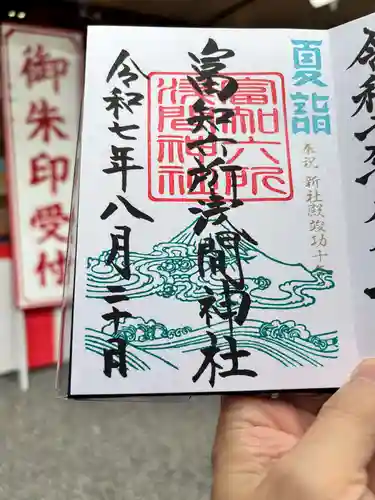 御朱印受付
夏詣
奉祝 新社殿竣功
富知六所浅間神社
富知六所
浅間神社
令和七年八月二十日